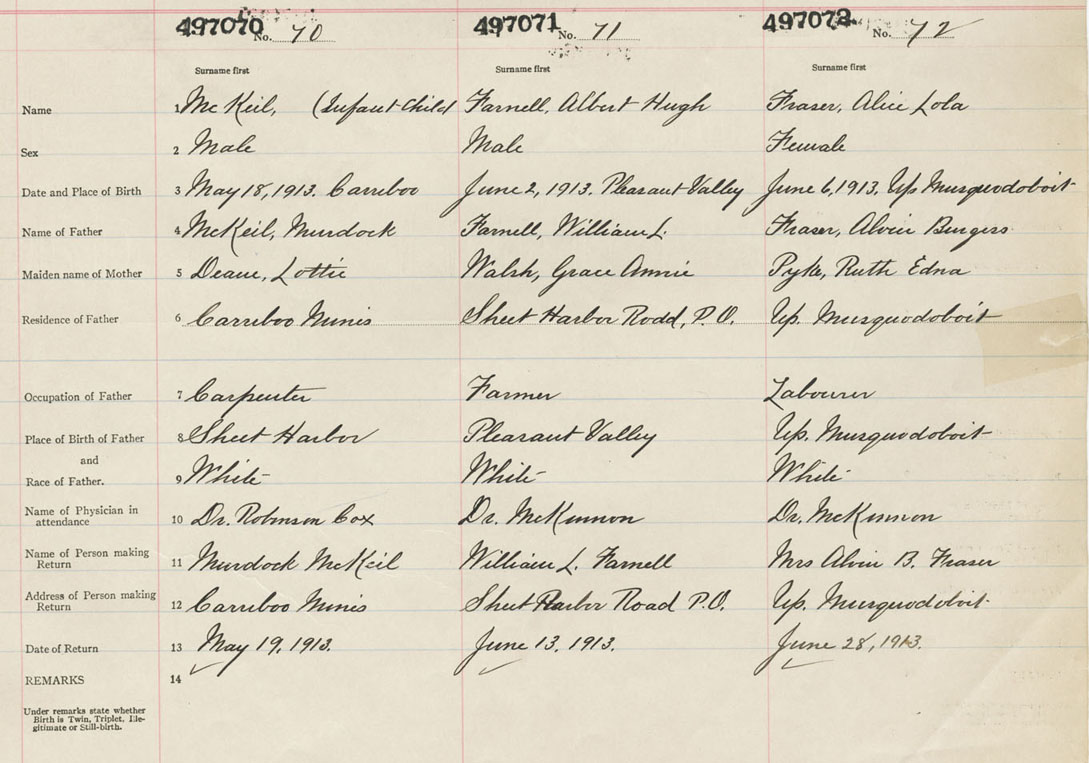 497070 No. 70 497071 No. 71 497072 No. 72
Surname first Surname first Surname first
Name 1 McKeil, (Infant Child Farnell, Albert Hugh Fraser, Alice Lola
Sex 2 Male Male Female
Date and Place of Birth 3 May 18, 1913. Carriboo June 2, 1913. Pleasant Valley June 6, 1913. Up Musquodoboit
Name of Father 4 McKeil, Murdock Farnell, William L. Fraser, Alvin Burgess
Maiden name of Mother 5 Deane, Lottie Walsh, Grace Annie Pyke, Ruth Edna
Residence of Father 6 Carriboo Minis Sheet Harbor Rodd, P.O. Up. Musquodoboit
Occupation of Father 7 Carpenter Farmer Labourer
Place of Birth of Father 8 Sheet Harbor Pleasant Valley Up. Musquodoboit
and
Race of Father. 9 White White White
Name of Physician in
attendance 10 Dr. Robinson Cox Dr. McKinnon Dr. McKinnon
Name of Person making
Return 11 Murdock McKeil William L. Farnell Mrs Alvin B. Fraser
Address of Person making
Return 12 Carriboo Minis Sheet Harbor Road P.O. Up. Musquodoboit
Date of Return 13 May 19, 1913. June 13, 1913. June 28, 1913.
REMARKS 14
Under remarks state whether
Birth is Twin, Triplet, Ille-
gitimate or Still-birth.